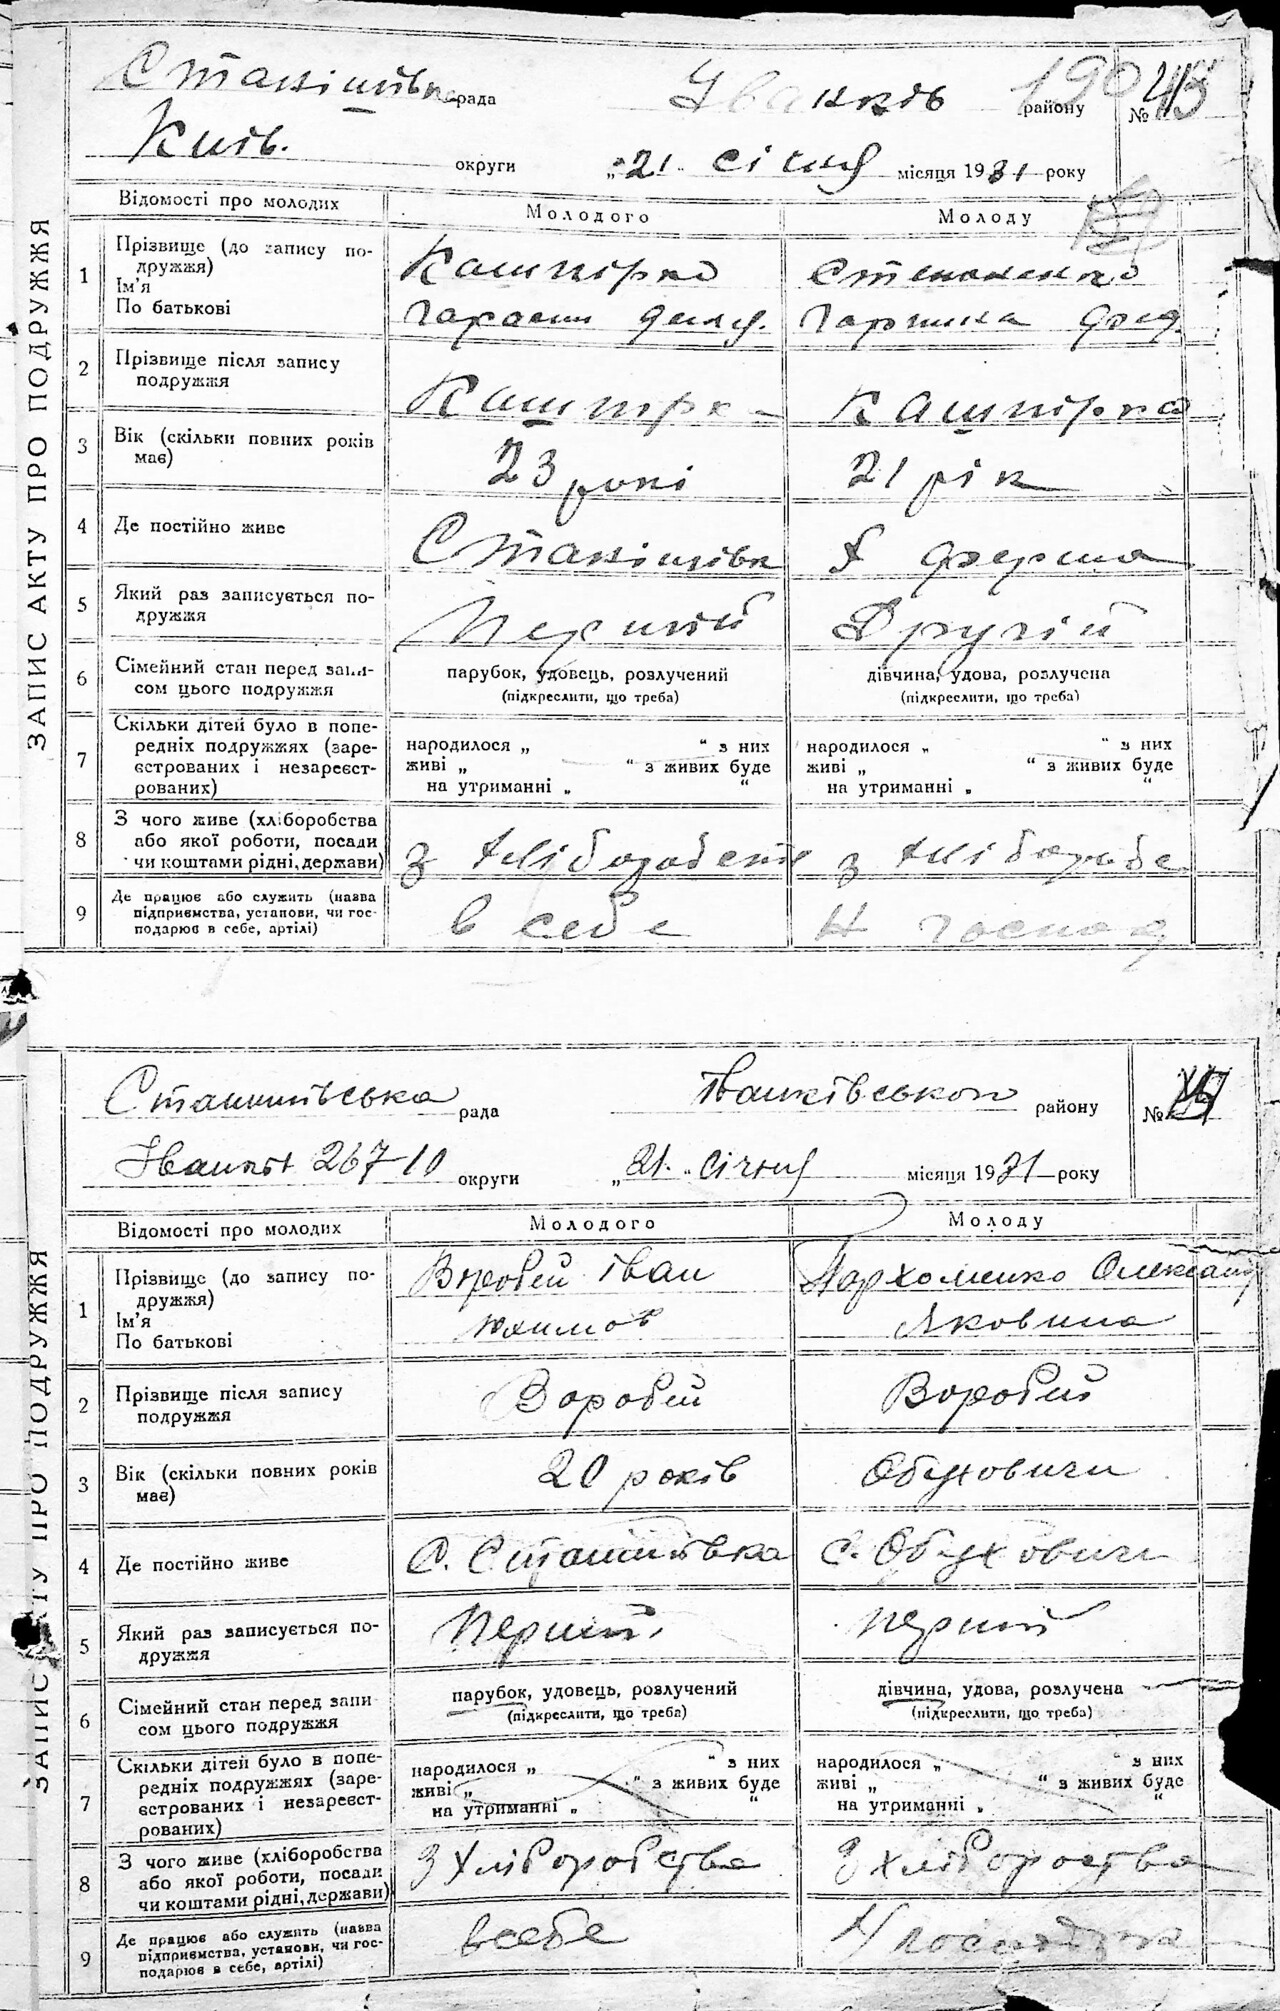 ЗАПИС АКТУ ПРО ПОДРУЖЖЯ
рада Іванків району №
Київ. округи „21“ січня місяця 1931 року
Відомості про молодих Молодого Молоду
1 Прізвище (до запису по-
дружжя)
Ім'я
По батькові
Кашпірко
Степаненко
2 Прізвище після запису
подружжя
Кашпірко
3 Вік (скільки повних років
має)
23 рокі 21 рік
4 Де постійно живе
ферма
5 Який раз записується по-
дружжя
Перший Другій
6 Сімейний стан перед запи-
сом цього подружжя
парубок, удовець, розлучений дівчина, удова, розлучена
(підкреслити, що треба) (підкреслити, що треба)
7 Скільки дітей було в попе-
редніх подружжях (заре-
єстрованих і незареєст-
рованих)
народилося „ “ з них народилося „ “ з них
живі „ “ з живих буде живі „ “ з живих буде
на утриманні „ “ на утриманні „ “
8 З чого живе (хліборобства
або якої роботи, посади
чи коштами рідні, держави)
з з
9 Де працює або служить (назва
підприємства, установи, чи гос-
подарює в себе, артілі)
в себе
ЗАПИС АКТУ ПРО ПОДРУЖЖЯ
рада Іванківськои району №
267-10 округи „21“ січня місяця 1931 року
Відомості про молодих Молодого Молоду
1 Прізвище (до запису по-
дружжя)
Ім'я
По батькові
Воробей Іван Пархоменко Олександ
Юхимов Яковина
2 Прізвище після запису
подружжя
Воробей Воробей
3 Вік (скільки повних років
має)
20 років Обуховичи
4 Де постійно живе
С. Сташівка с. Обуховичи
5 Який раз записується по-
дружжя
перший перший
6 Сімейний стан перед запи-
сом цього подружжя
парубок, удовець, розлучений дівчина, удова, розлучена
(підкреслити, що треба) (підкреслити, що треба)
7 Скільки дітей було в попе-
редніх подружжях (заре-
єстрованих і незареєст-
рованих)
народилося „ “ з них народилося „ “ з них
живі „ “ з живих буде живі „ “ з живих буде
на утриманні „ “ на утриманні „ “
8 З чого живе (хліборобства
або якої роботи, посади
чи коштами рідні, держави)
З хліборобства З хлібороства
9 Де працює або служить (назва
підприємства, установи, чи гос-
подарює в себе, артілі)
всебе